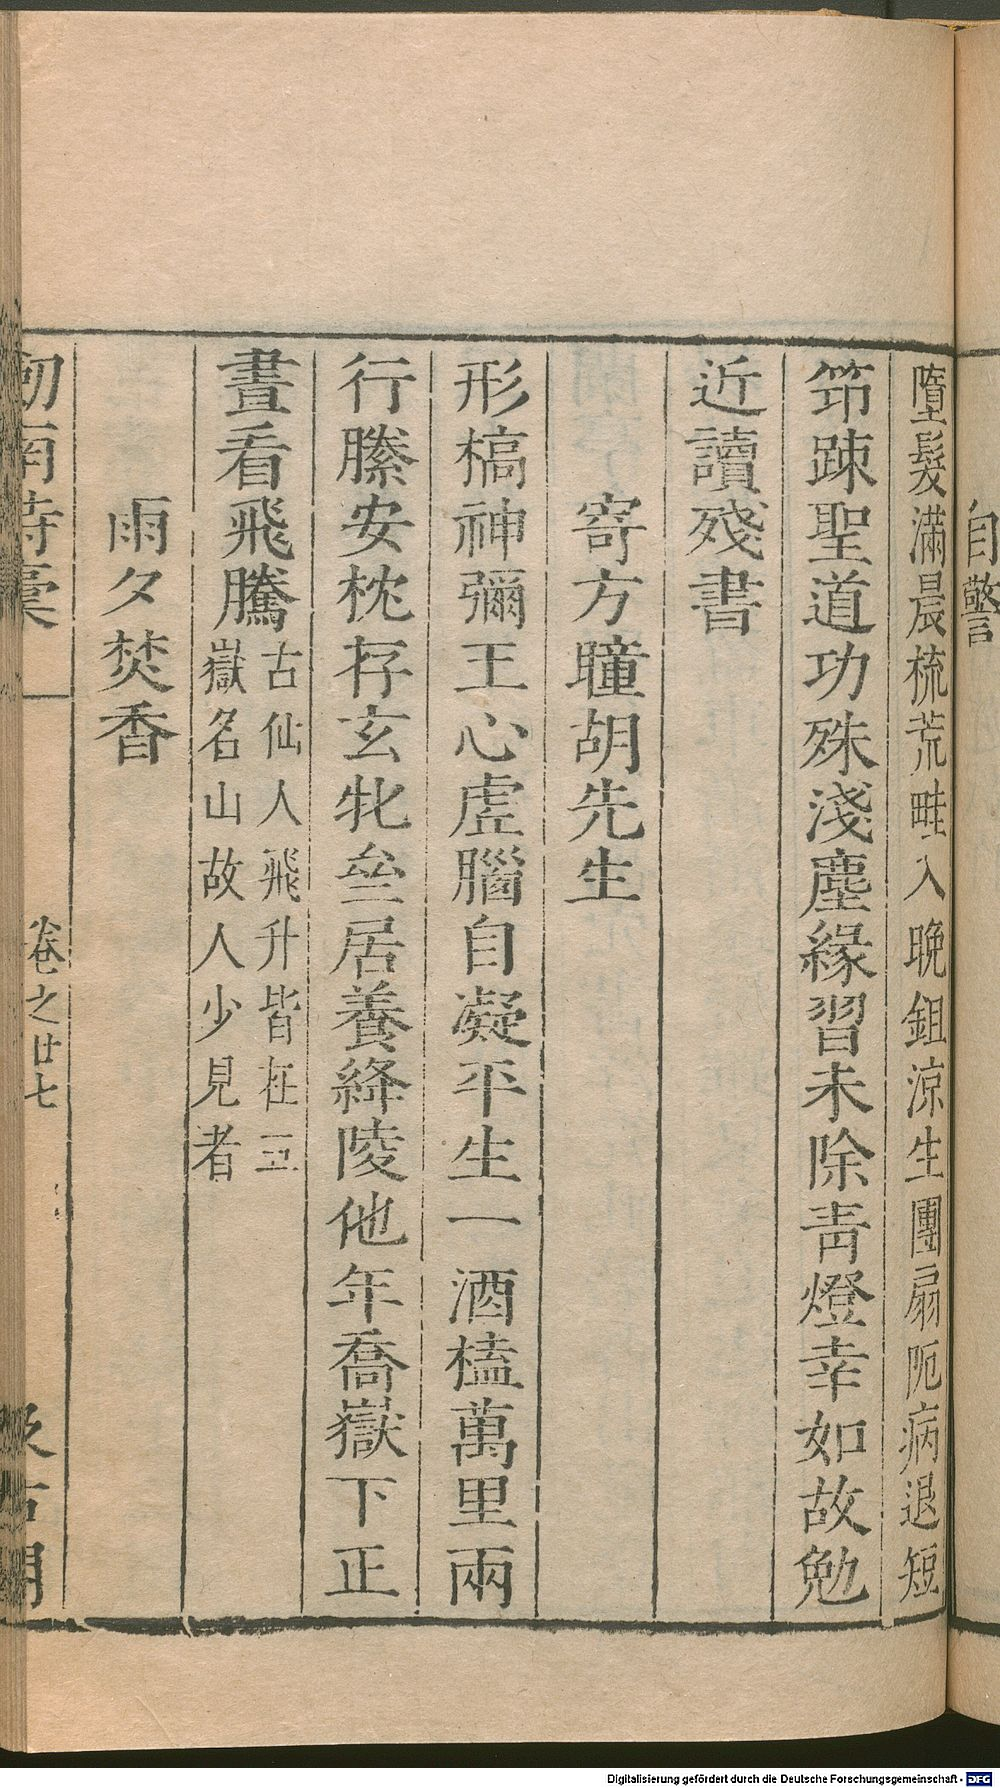 自警
墮髮滿晨梳荒畦入晚鉏涼生團扇阨病退短
笻踈聖道功殊淺塵緣習未除靑燈幸如故勉
近讀殘書
寄方瞳胡先生
形槁神彌王心虛腦自凝平生一酒榼萬里兩
行縢安枕存玄牝垒居養絳陵他年喬嶽下正
晝看飛騰古仙人飛升皆在五
嶽名山故人少見者
雨夕焚香
劒南詩稾
卷之廿七
汲古閣
Digitalisierung gefördert durch die Deutsche Forschungsgemeinschaft - DFG